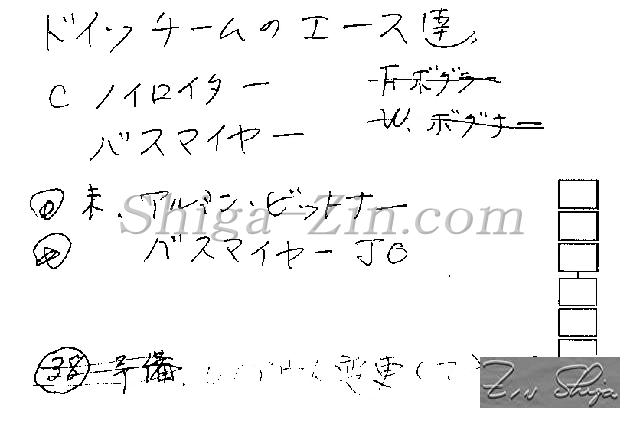 ドイツチームのエース達
C ノイロイター
F. ボグナー
バスマイヤー
W. ボグナー
末. アルミン・ビットナー
Shiga-Zin.com
バスマイヤー JO
38 予備. 変更して
Zin Shiga